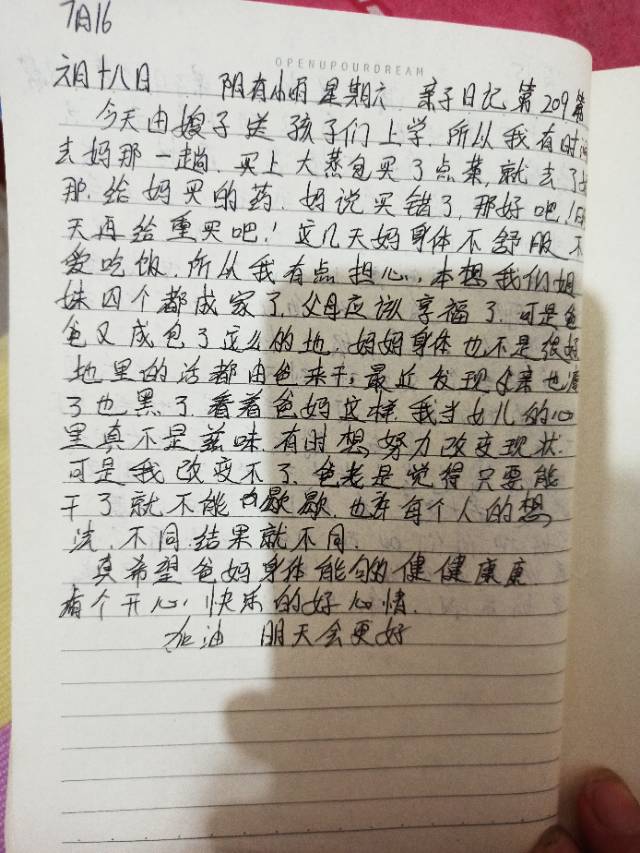 7月16
OPENUPOURDREAM
六月十八日 阴有小雨 星期六 亲子日记 第209篇
今天由嫂子送孩子们上学,所以我有时间
去妈那一趟,买上大蒸包买了点菜,就去了妈
那.给妈买的药.妈说买错了,那好吧!明
天再给重买吧!这几天妈身体不舒服不
爱吃饭.所以我有点担心,本想我们姐
妹四个都成家了.父母应该享福了.可是爸
爸又成包了这么的地.妈妈身体也不是很好
地里的活都由爸来干,最近发现父亲也瘦
了也黑了.看着爸妈这样.我当女儿的心
里真不是滋味.有时想努力改变现状.
可是我改变不了.爸老是觉得只要能
干了就不能歇歇.也许每个人的想
法.不同.结果就不同.
真希望爸妈身体能够的健健康康
有个开心,快乐的好心情.
加油 明天会更好